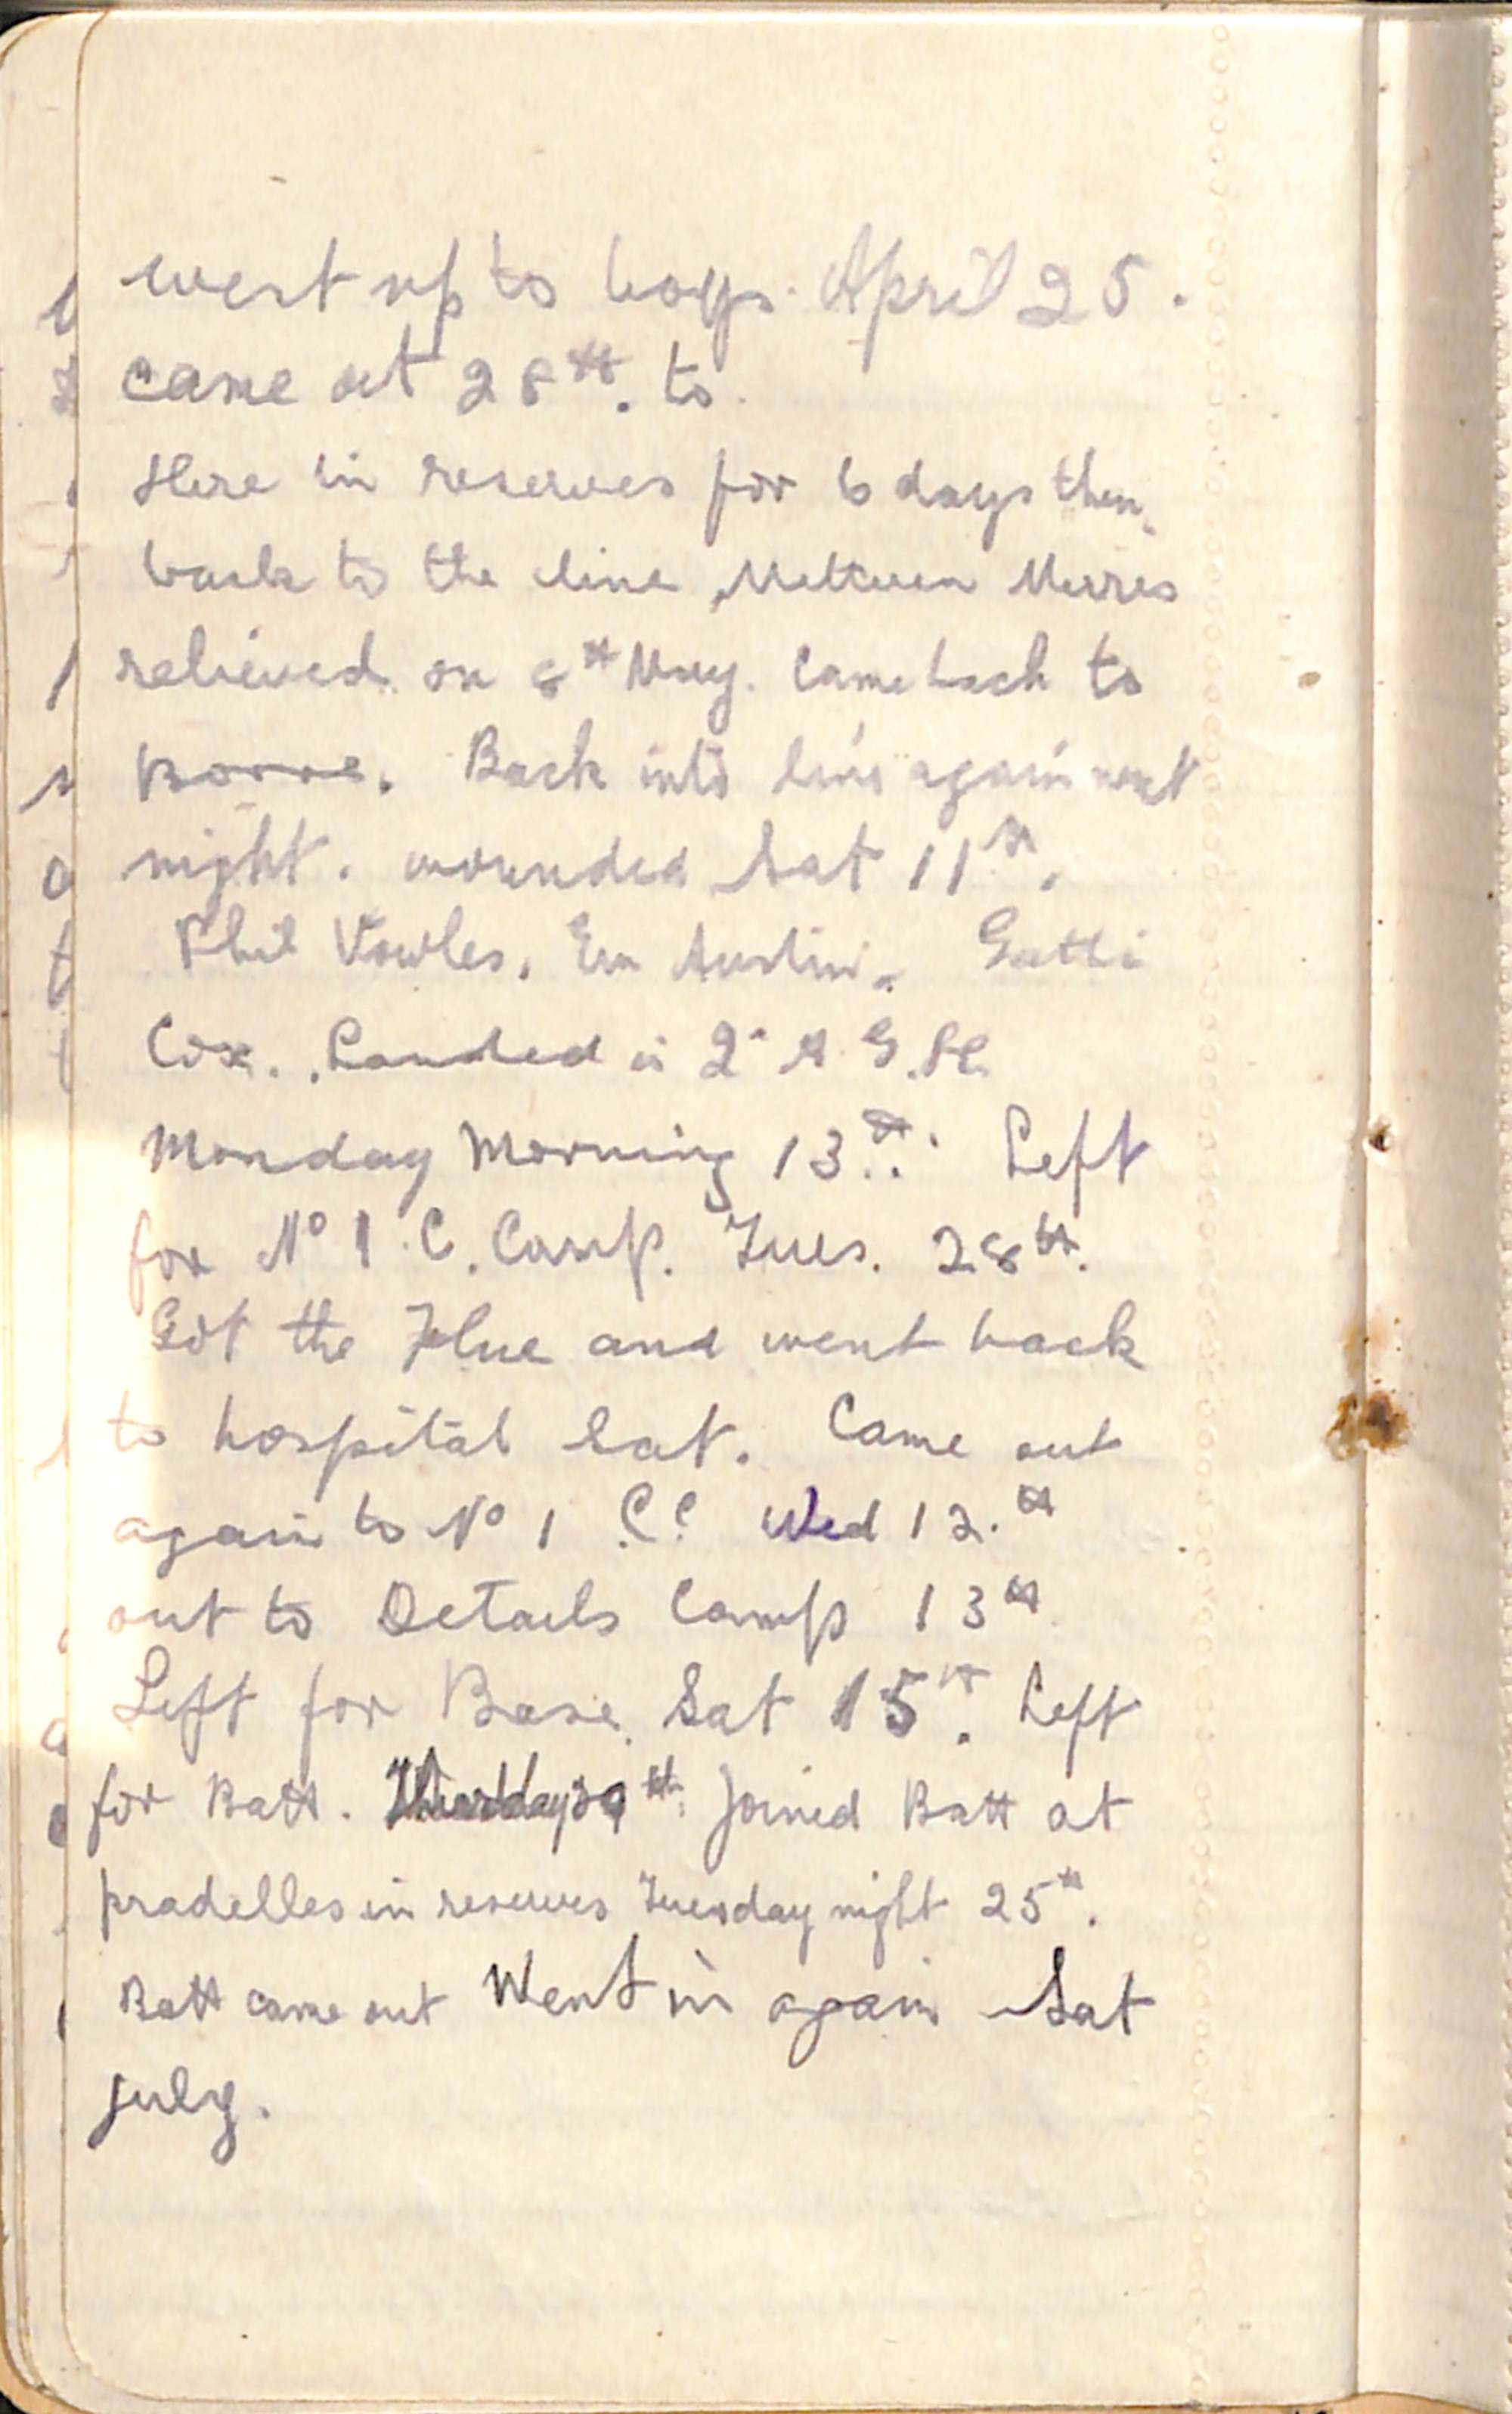 went up to boys. April 25.
came out 28th. to
Here in reserves for 6 days then
back to the line, Metteren Merris
relieved on 8th May. Came back to
Borre. Back into line again next
night. wounded Sat 11th.
Phil Vowles. Em Austin. Gatti
Cox. Landed in 2. A. G. H.
Monday Morning 13th. Left
for No 1 C. Camp. Tues. 28th.
Got the Flue and went back
to hospital Sat. Came out
again to No 1 C.C Wed 12.th
out to Details Camp 13th
Left for Base. Sat 15th. Left
for Batt. Thursday 20th. Joined Batt at
pradelles in reserves Tuesday night 25th.
Batt came out Went in again Sat
july.